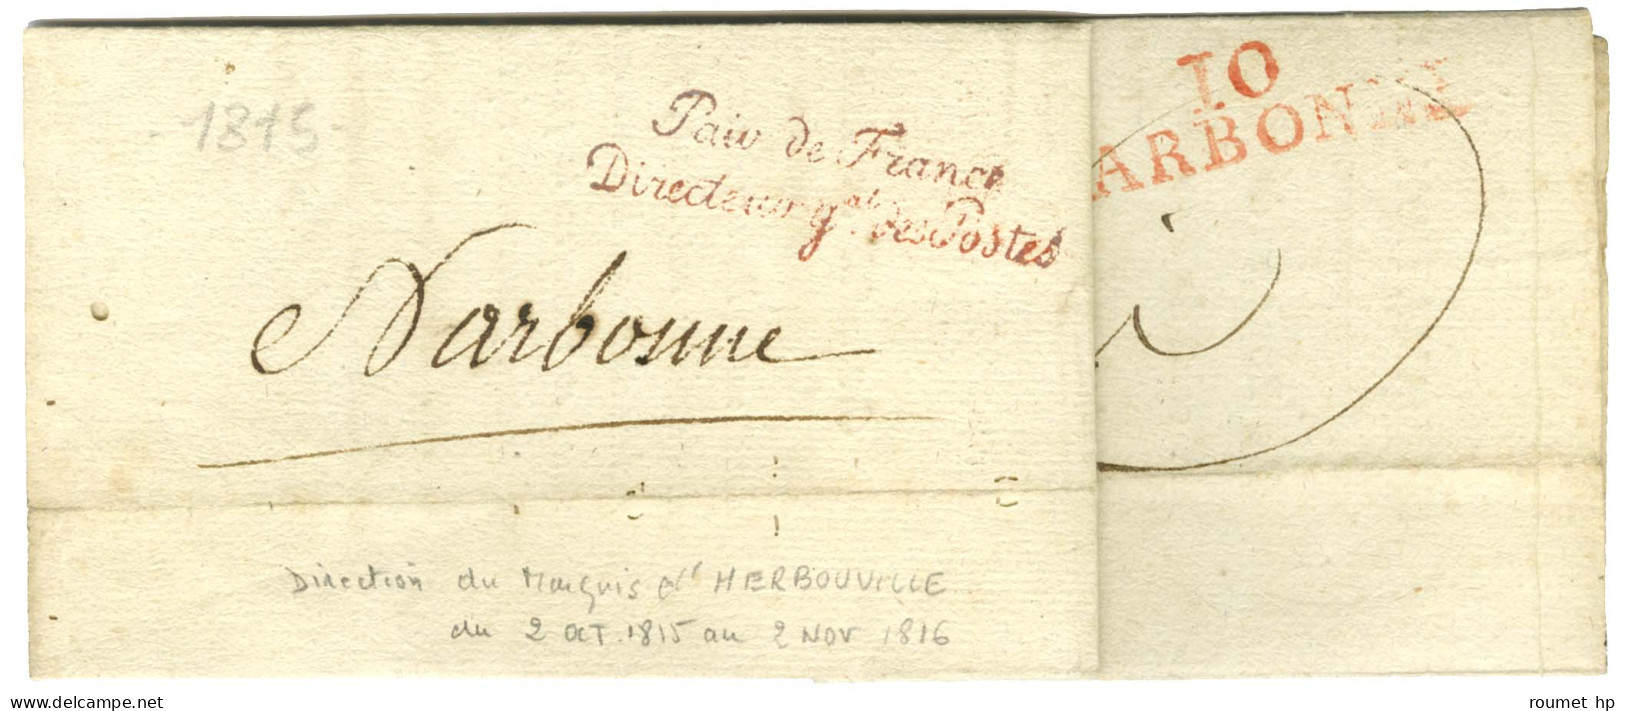 10
ARBONNE
1815
Pair de France
Directeur gal. des Postes
Narbonne
Direction du Marquis d' HERBOUVILLE
du 2 OCT. 1815 au 2 NOV 1816
roumet hp